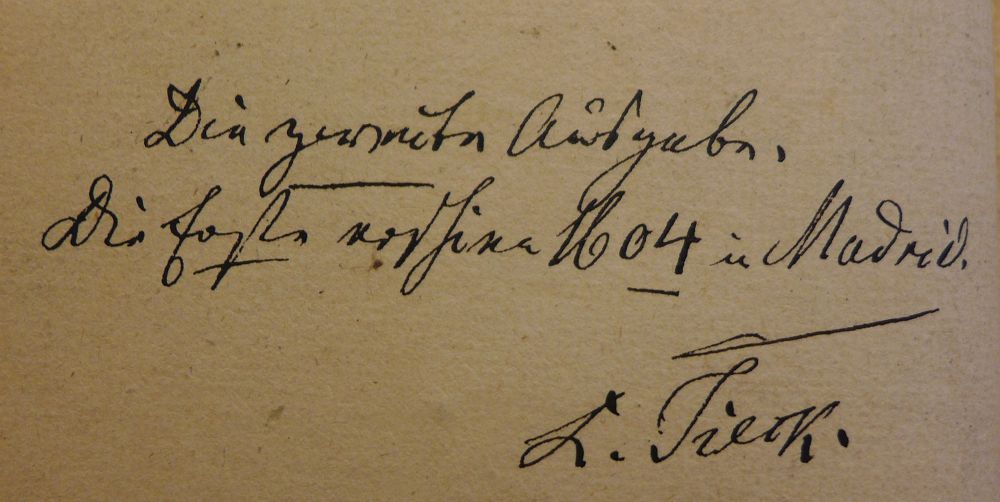 Die zweite Ausgabe.
Die Erste erschien 1604 in Madrid.
L. Tieck.